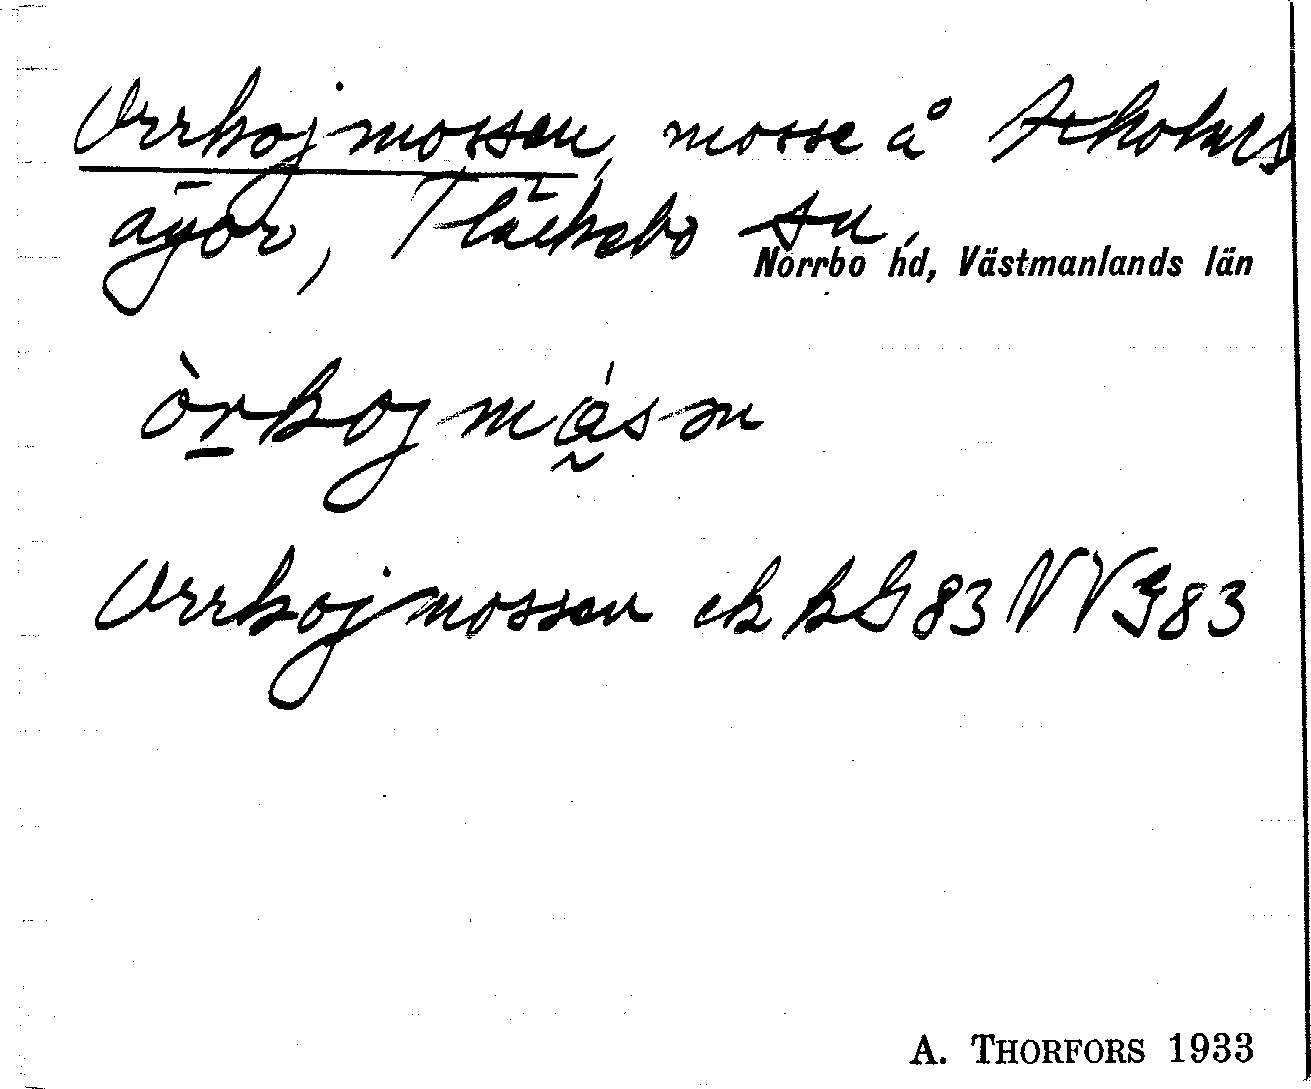 Orrkojmossen, mosse å Axholms
ägor, Fläckebo sn,
Norrbo hd, Västmanlands län
òrkojmåsən
Orrkojmossen ek kG83NVG83
A. THORFORS 1933